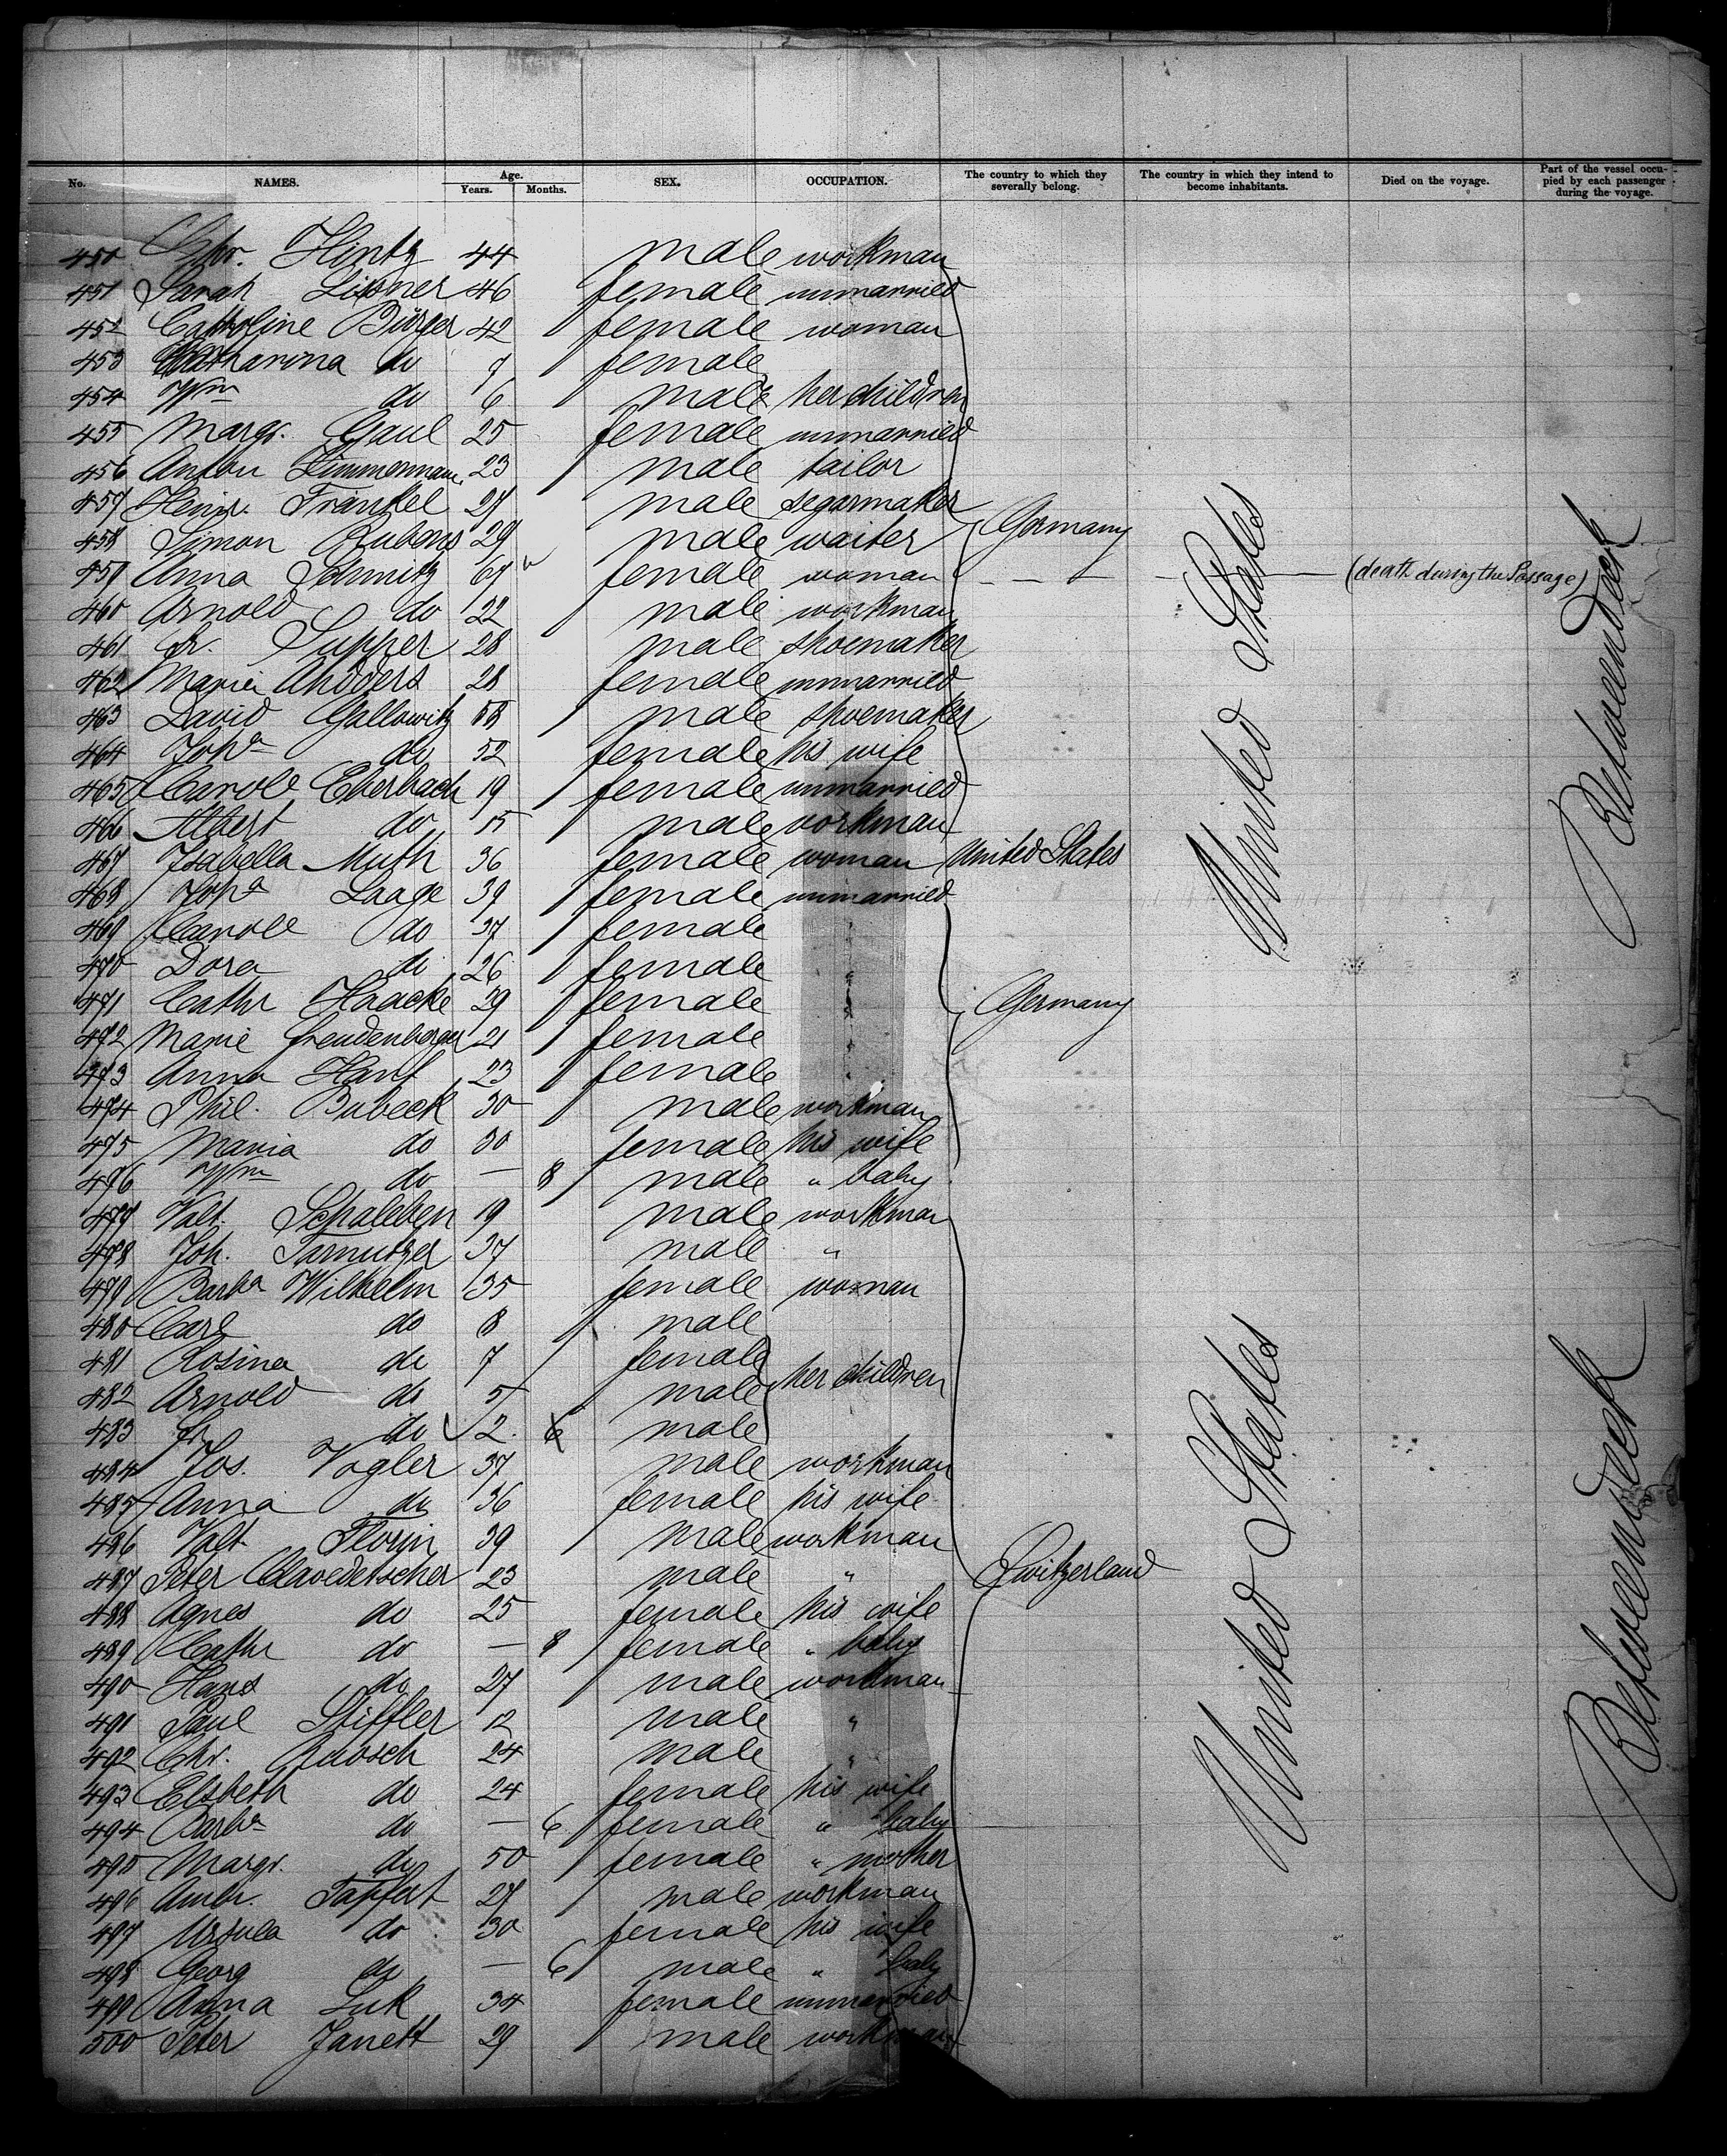 No. NAMES. Age. Years. Months. SEX. OCCUPATION. The country to which they severally belong. The country in which they intend to become inhabitants. Died on the voyage. Part of the vessel occupied by each passenger during the voyage.
450 Chr. Hintz 44 male workman
451 Sarah Lissner 46 female unmarried
452 Caroline Bürger 42 female woman
453 Katharina do 7 female
454 Wm do 6 male her children
455 Margr. Gaul 25 female unmarried
456 Anton Zimmermann 23 male tailor
457 Heinr. Fränkel 27 male segarmaker Germany
458 Simon Rubens 29 male waiter
459 Anna Schmitz 67 female woman (death during the Passage)
460 Arnold do 22 male workman
461 Fr. Supper 28 male shoemaker
462 Maria Ahdders 28 female unmarried
463 David Gallowitz 58 male shoemaker
464 Joha do 52 female his wife
465 Carole Eberbach 19 female unmarried
466 Albert do 15 male workman
467 Isabella Muth 36 female woman United States
468 Joha Laage 39 female unmarried
469 Carole do 37 female "
470 Dora do 26 female "
471 Cathr Haacke 29 female " Germany
472 Marie Freudenberger 21 female "
473 Anna Hanf 23 female "
474 Phil. Bubeck 30 male workman
475 Maria do 30 female his wife
476 Wm do — 8 male " baby
477 Valt. Schaleben 19 male workman
478 Joh. Tarnutzer 37 male "
479 Barba Wilhelm 35 female woman
480 Carl do 8 male
481 Rosina do 7 female her children
482 Arnold do 5 male
483 Fr. do 2 6 male
484 Jos. Vogler 37 male workman
485 Anna do 36 female his wife
486 Valt. Florin 39 male workman
487 Peter Clavedetscher 23 male " Switzerland
488 Agnes do 25 female his wife
489 Cathr do — 8 female " baby
490 Hans do 27 male workman
491 Paul Stiffler 12 male "
492 Chr. Ruosch 24 male "
493 Elsbeth do 24 female his wife
494 Barba do — 6 female " baby
495 Margr. do 50 female " mother
496 Ambr. Tapfert 27 male workman
497 Ursula do 30 female his wife
498 Georg do — 6 male " baby
499 Anna Luk 34 female unmarried
500 Peter Janett 29 male workman
United States
Betweendeck
United States
Betweendeck